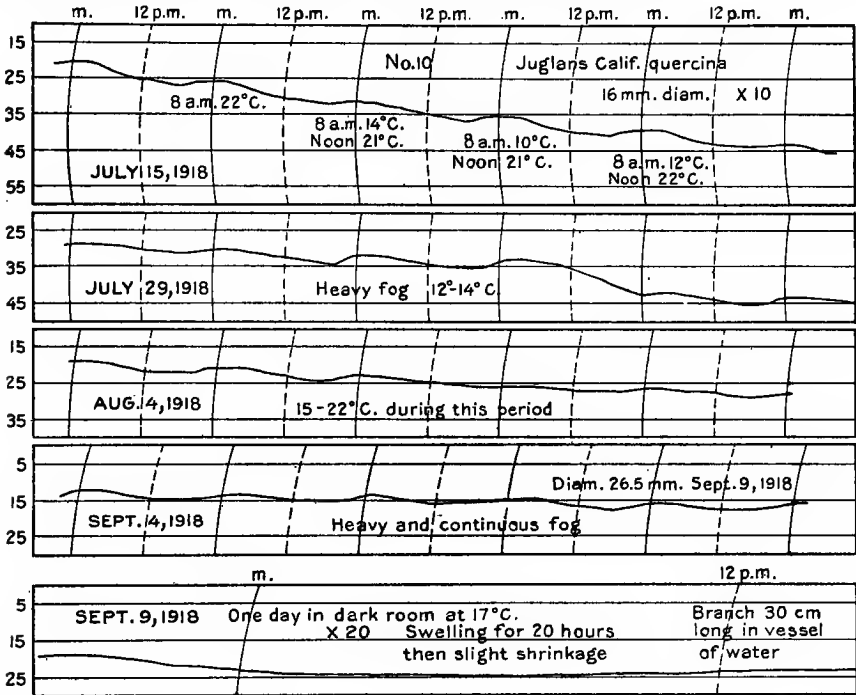 m. 12 p.m. m. 12 p.m. m. 12 p.m. m. 12 p.m. m. 12 p.m. m.
15
25
35
45
55
No.10 Juglans Calif. quercina
16 mm. diam. X 10
8 a.m. 22°C.
8 a.m. 14°C.
Noon 21°C.
8 a.m. 10°C.
Noon 21°C.
8 a.m. 12°C.
Noon 22°C.
JULY 15, 1918
25
35
45
JULY 29, 1918 Heavy fog 12°-14°C.
15
25
35
AUG. 4, 1918 15-22°C. during this period
5
15
25
Diam. 26.5 mm. Sept. 9, 1918
SEPT. 4, 1918 Heavy and continuous fog
m. 12 p.m.
5
15
25
SEPT. 9, 1918 One day in dark room at 17°C.
X 20 Swelling for 20 hours
then slight shrinkage
Branch 30 cm
long in vessel
of water